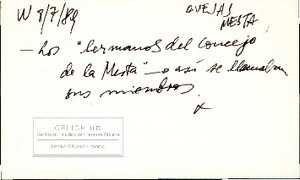 W 8/7/89
OVEJAS
MESTA
— Los "hermanos del Concejo
de la Mesta" — o así se llamaban
sus miembros.
x
CELICH UC